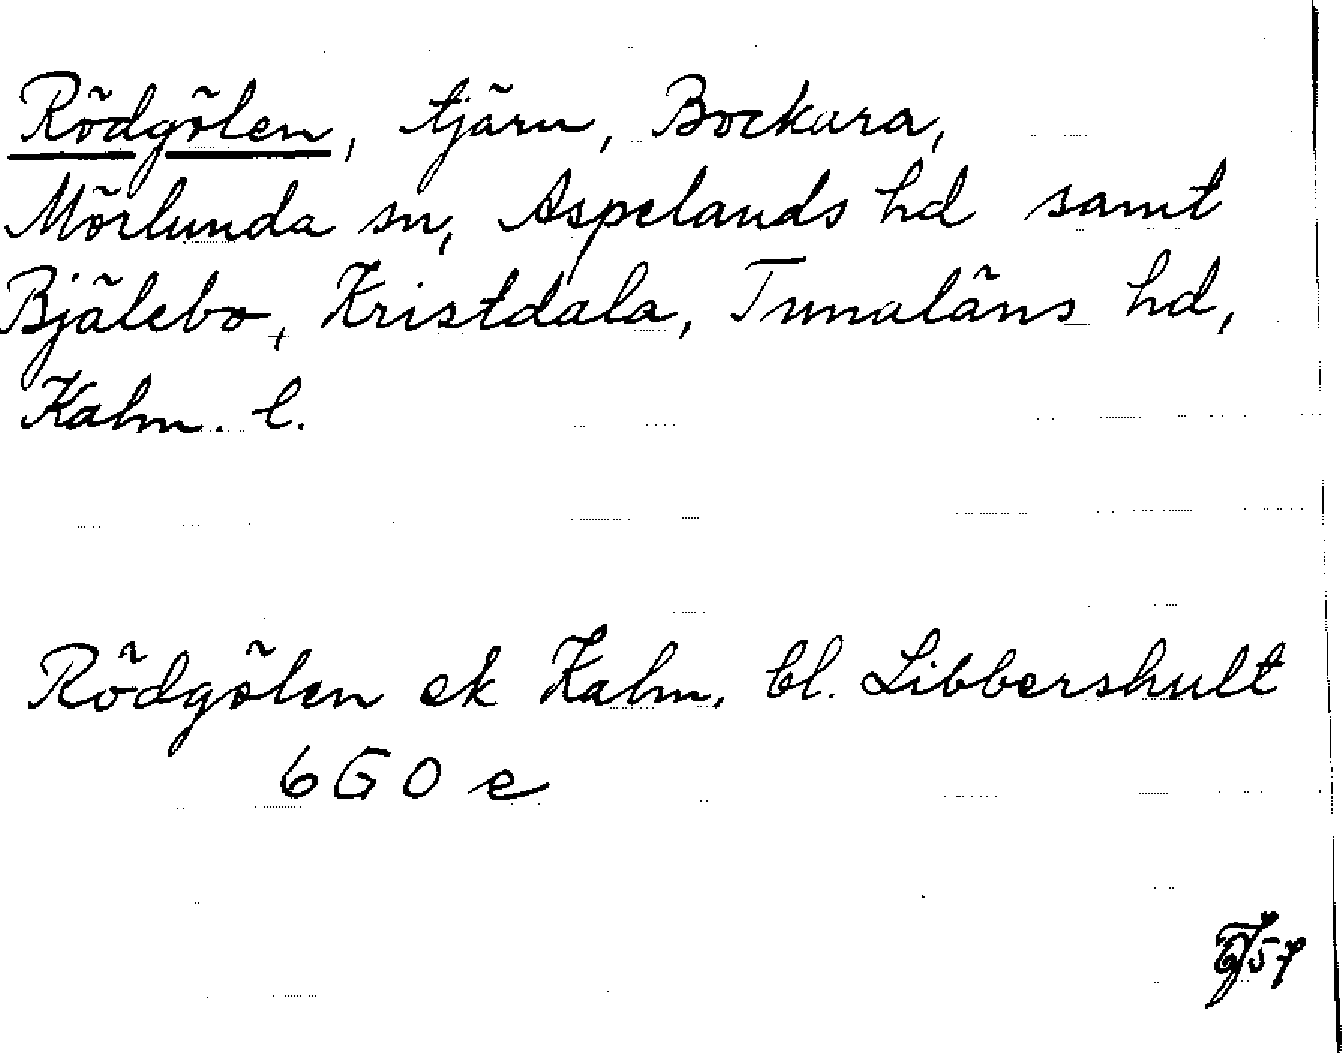 Rödgölen, tjärn, Bockara,
Mörlunda sn, Aspelands hd samt
Bjälebo, Kristdala, Tunaläns hd,
Kalm. l.
Rödgölen ek Kalm. bl. Libbershult
6 G 0 e
57